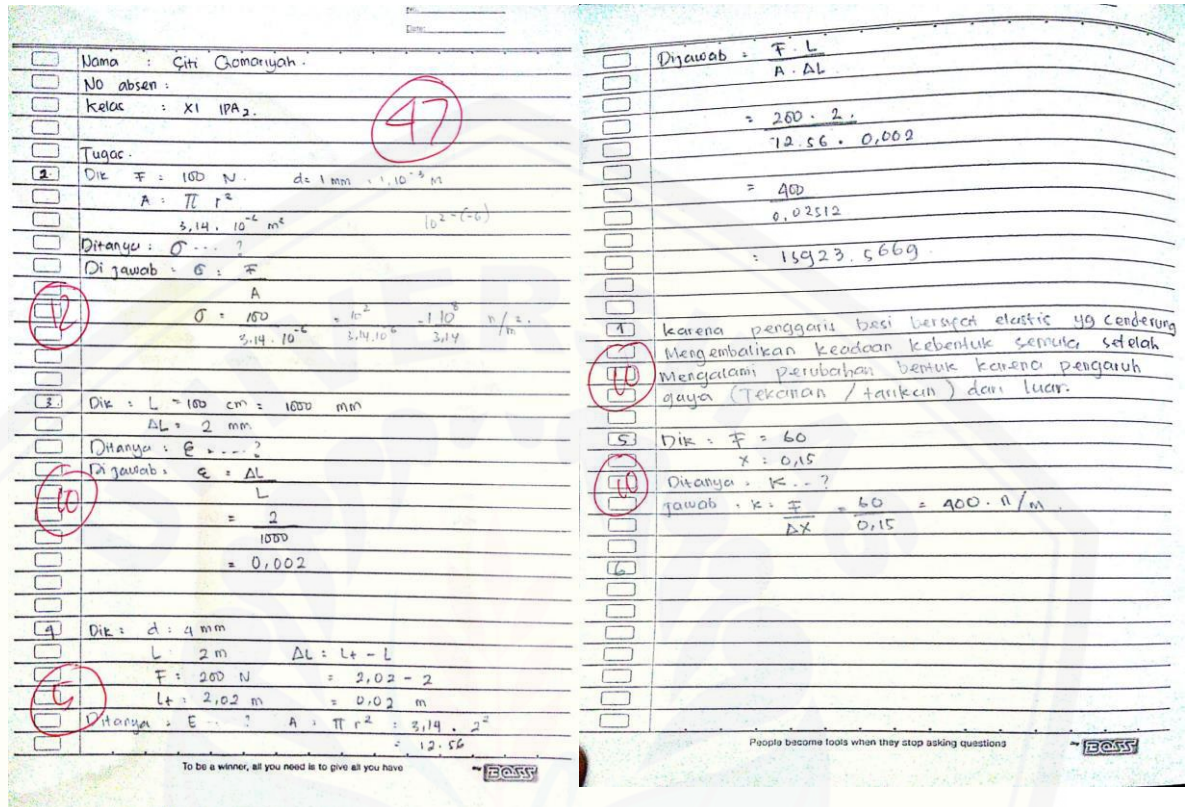 No:
Date:
Nama : Siti Qomariyah.
No absen :
Kelas : XI IPA2.
47
Tugas.
2. Dik F = 100 N. d = 1 mm = 1.10⁻³ m
A = π r²
3,14 . 10⁻⁶ m²
10²⁻⁽⁻⁶⁾
Ditanya : σ ... ?
Di jawab : σ = F/A
12
σ = 100/3,14 . 10⁻⁶ = 10²/3,14.10⁻⁶ = 1.10⁸/3,14 n/m².
3. Dik : L = 100 cm = 1000 mm
ΔL = 2 mm
Ditanya : ε = ....?
Di jawab : ε = ΔL/L
10
= 2/1000
= 0,002
4 Dik : d : 4 mm
L 2 m ΔL : Lt - L
F : 200 N = 2,02 - 2
Lt : 2,02 m = 0,02 m
5
Ditanya : E ... ? A : π r² = 3,14 . 2²
= 12.56
To be a winner, all you need is to give all you have
BOSS
Dijawab : F . L/A . ΔL
= 200 . 2./12.56 . 0,002
= 400/0,02512
= 15923.5669.
1 karena penggaris besi bersifat elastis yg cenderung
Mengembalikan keadaan kebentuk semula setelah
10
Mengalami perubahan bentuk karena pengaruh
gaya (Tekanan / tarikan) dari luar.
5 Dik : F = 60
x : 0,15
10
Ditanya : K .. ?
jawab : k = F/ΔX = 60/0,15 = 400 . n/m.
6
People become fools when they stop asking questions
BOSS